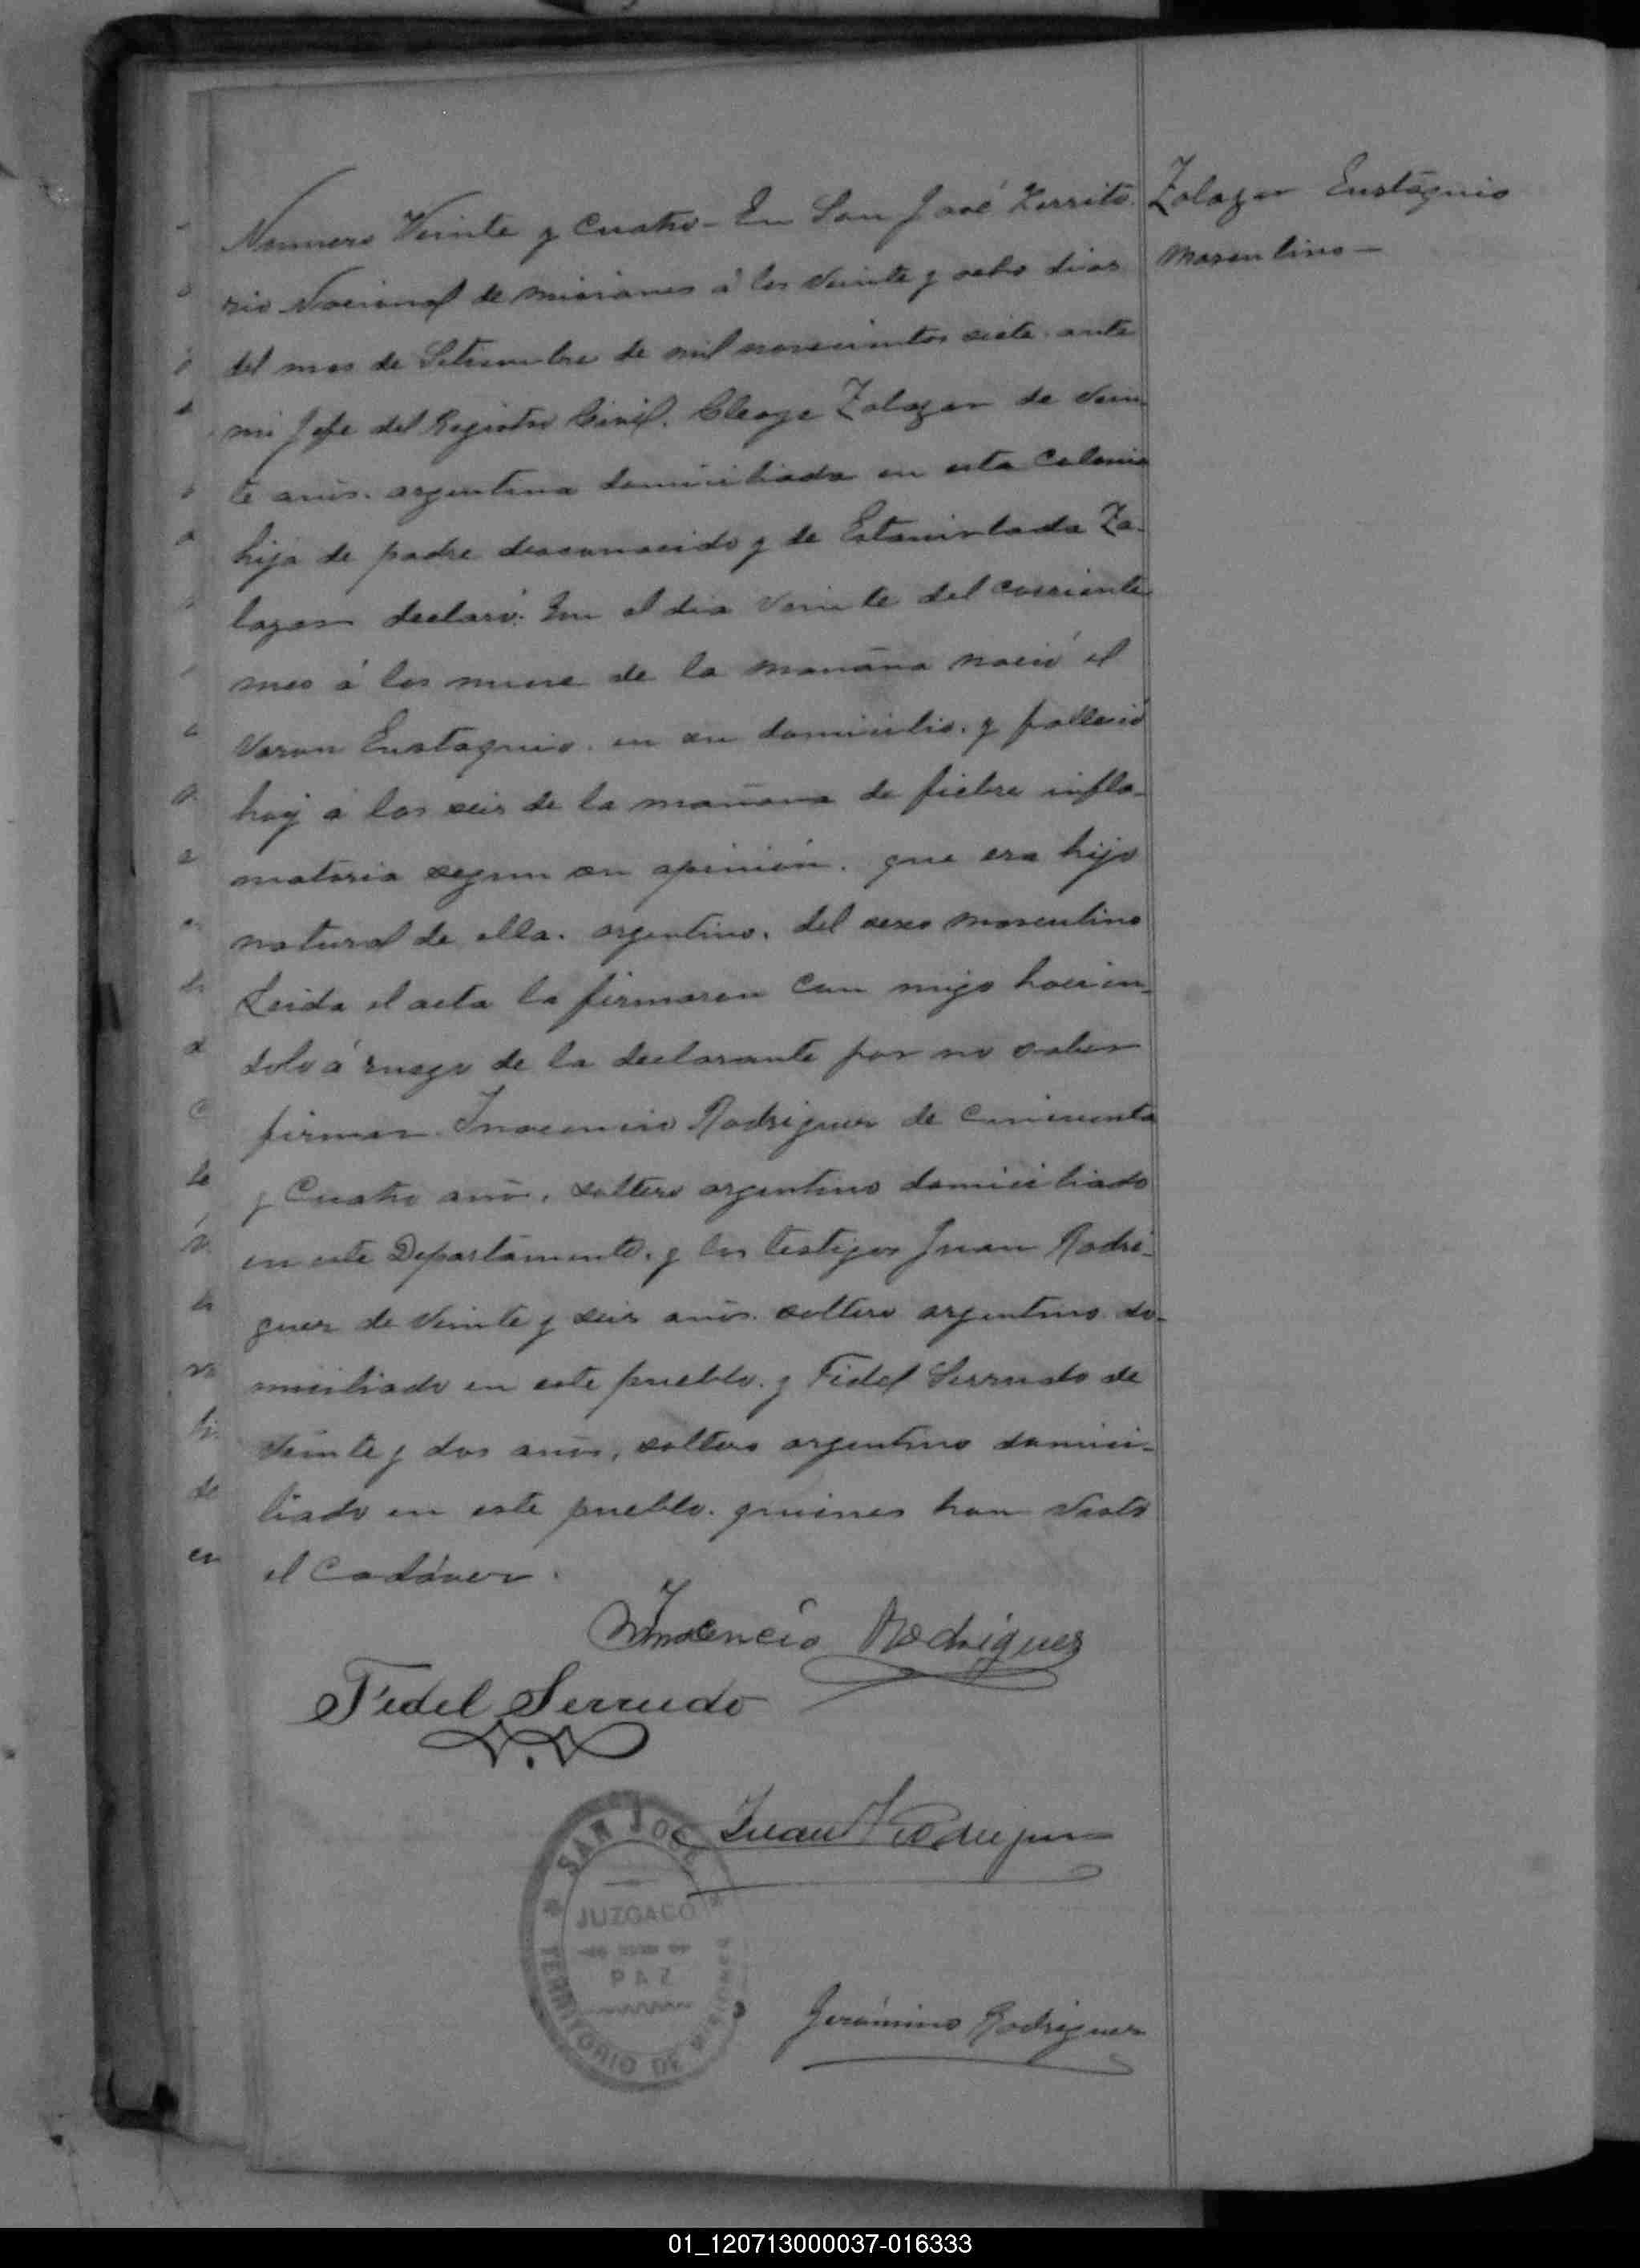 Zalazar Eustaquio
Masculino—
Numero Veinte y Cuatro - En San José Territo-
rio Nacional de Misiones á los Veinte y ocho dias
del mes de Setiembre de mil novecientos siete. ante
mi Jefe del Registro Civil. Zalazar de Vein-
te años. argentina domiciliada en esta Colonia
hija de padre desconocido y de Estanislada Za-
lazar declaró: Que el dia Veinte del corriente
mes á las nueve de la mañana nació el
Varon Eustaquio. en su domicilio. y falleció
hoy á las seis de la mañana de fiebre infla-
matoria segun su opinión. que era hijo
natural de ella. argentino. del sexo masculino
Leida el acta la firmaron con migo hacien-
dolo á ruego de la declarante por no saber
firmar Inocencio Rodriguez de Cincuenta
y Cuatro años, soltero argentino domiciliado
en este Departamento. y los testigos Juan Rodri-
guez de Veinte y seis años. soltero argentino do-
miciliado en este pueblo. y Fidel Serrudo de
Veinte y dos años, soltero argentino domici-
liado en este pueblo. quienes han Visto
el Cadáver.
Inocencio Rodriguez
Fidel Serrudo
Juan Rodriguez
SAN JOSE
JUZGADO
DE
PAZ
TERRITORIO DE MISIONES
Jerónimo Rodriguez
01_120713000037-016333